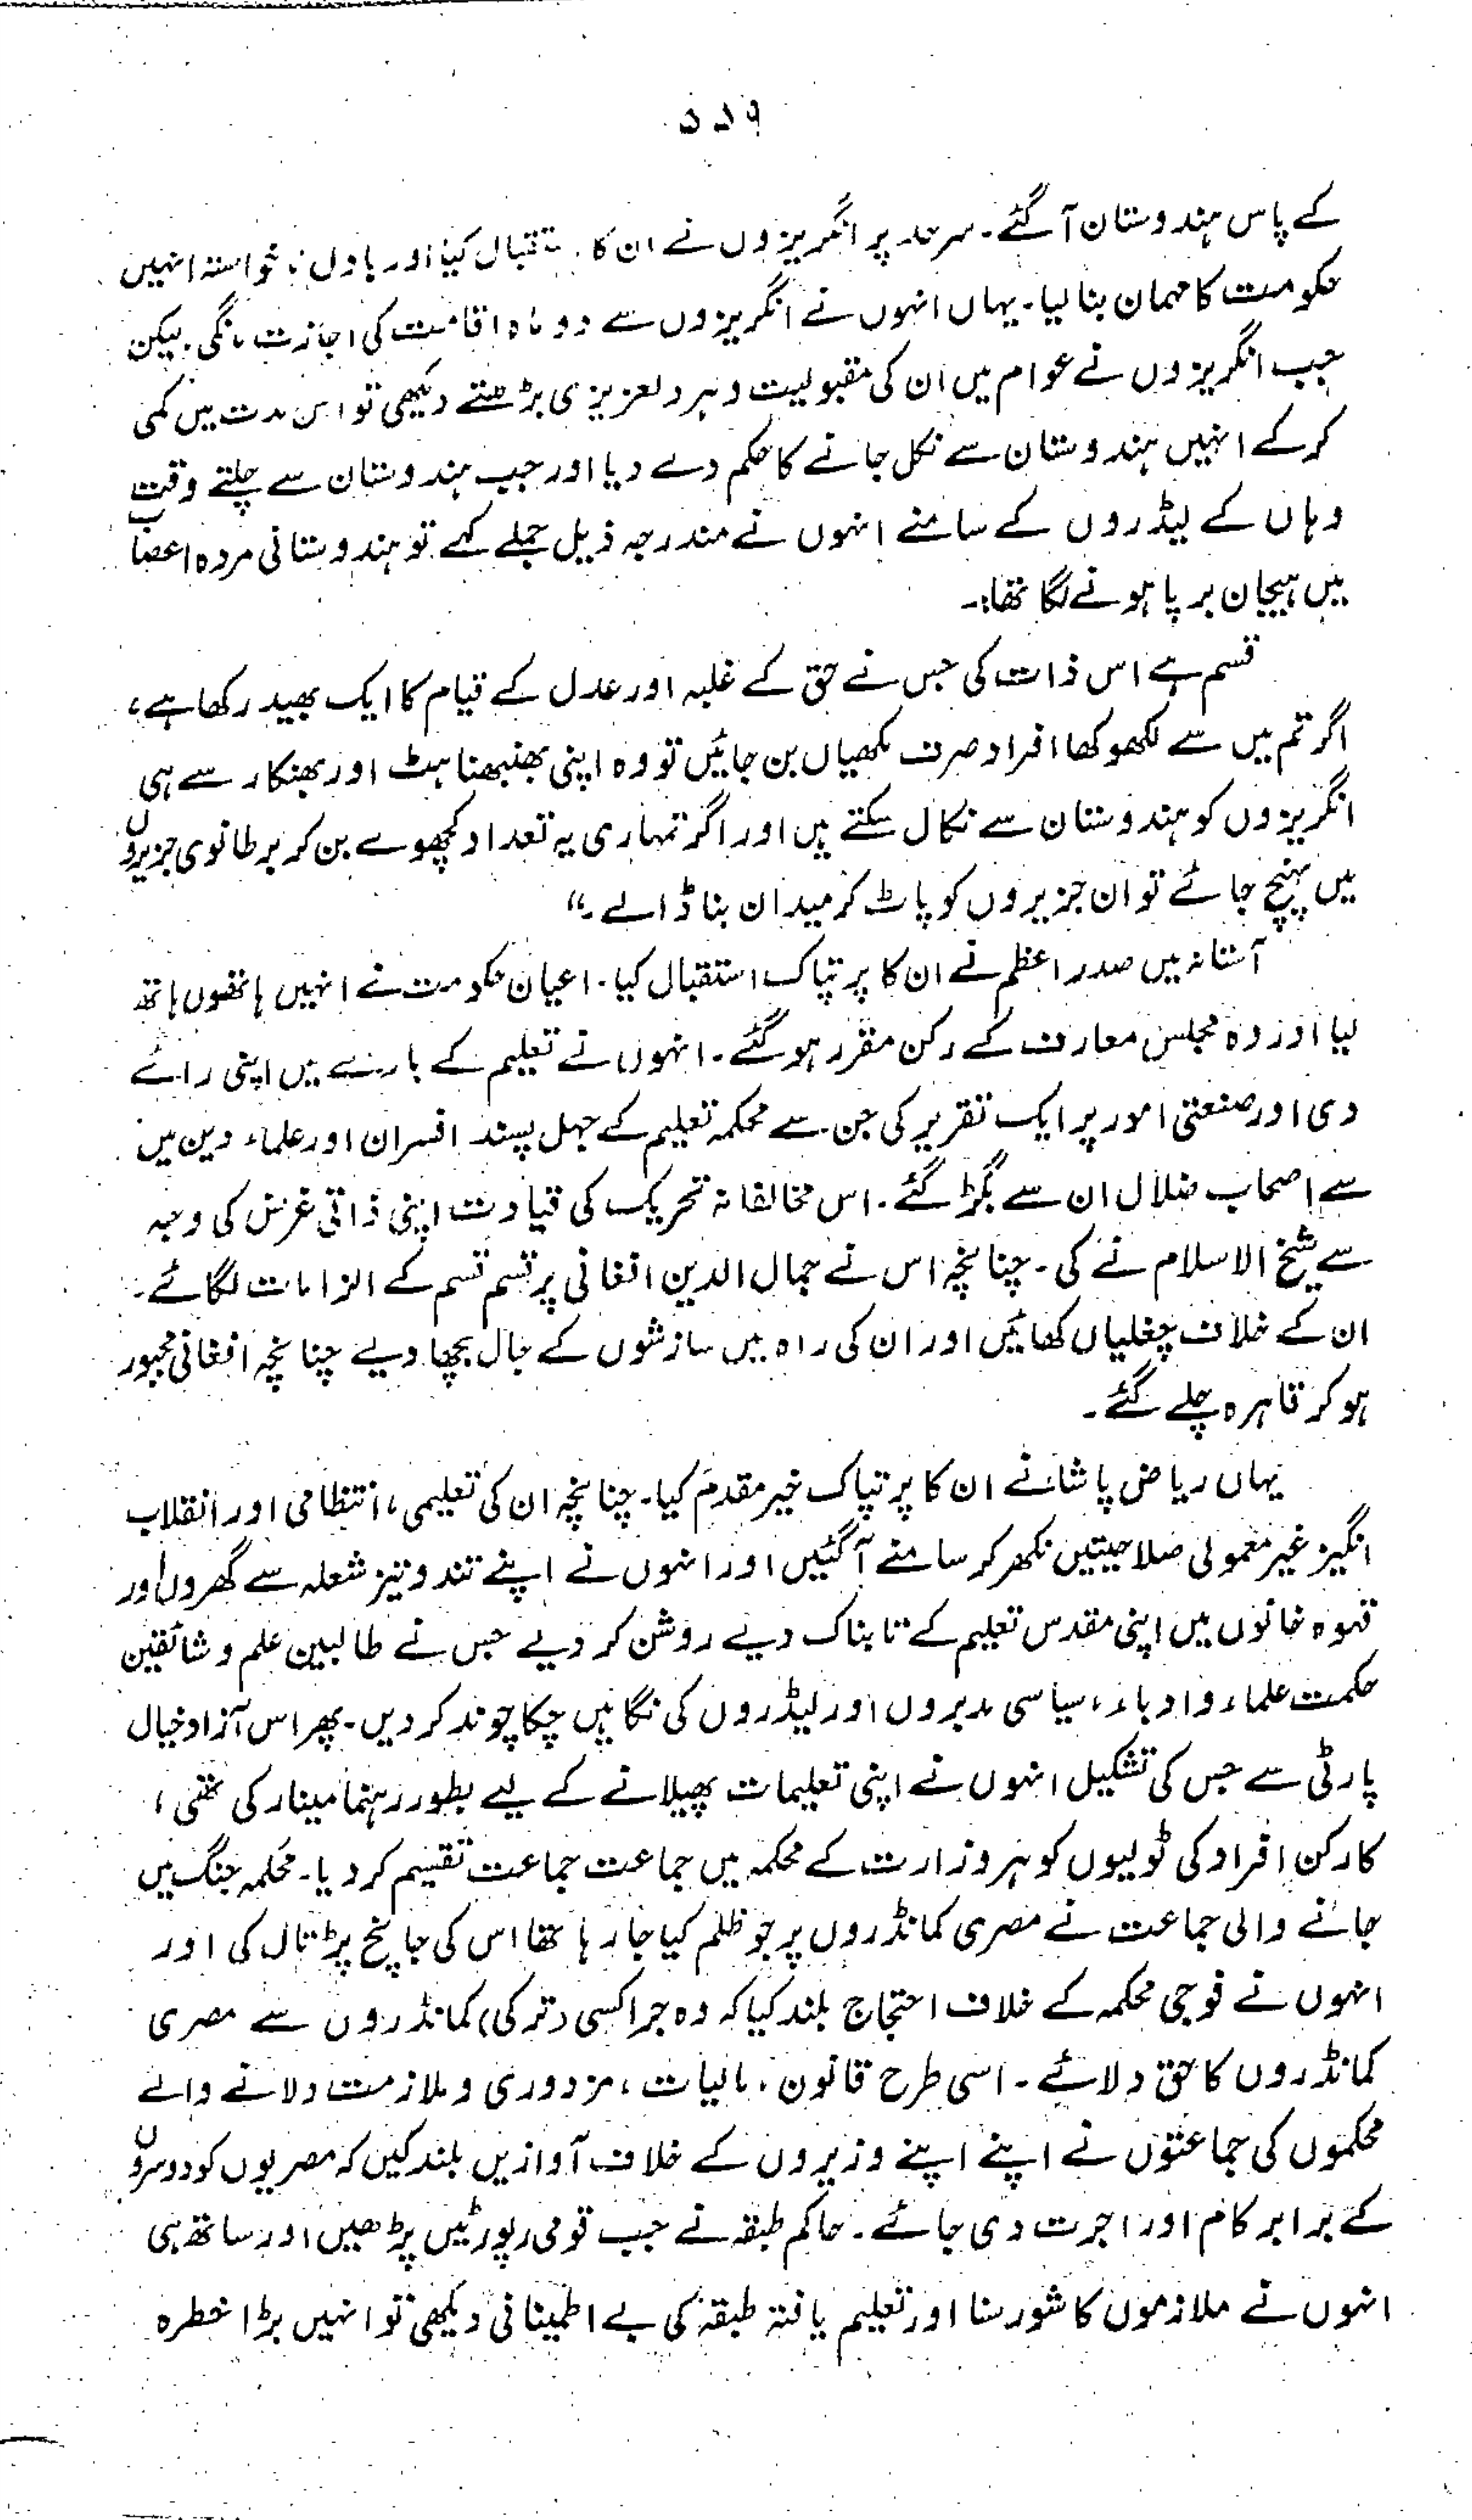 ۵۵۹
کے پاس ہندوستان آ گئے۔ سرحد پر انگریزوں نے ان کا استقبال کیا اور بادل نخواستہ انہیں
حکومت کا مہمان بنا لیا۔ یہاں انہوں نے انگریزوں سے دو ماہ اقامت کی اجازت مانگی۔ لیکن
جب انگریزوں نے عوام میں ان کی مقبولیت و ہر دلعزیزی بڑھتے دیکھی تو اس مدت میں کمی
کر کے انہیں ہندوستان سے نکل جانے کا حکم دے دیا اور جب ہندوستان سے چلتے وقت
وہاں کے لیڈروں کے سامنے انہوں نے مندرجہ ذیل جملے کہے تو ہندوستانی مردہ اعصاب
میں ہیجان برپا ہونے لگا تھا:۔
قسم ہے اس ذات کی جس نے حق کے غلبہ اور عدل کے قیام کا ایک بھید رکھا ہے،
اگر تم میں سے لکھوکھا افراد صرف مکھیاں بن جائیں تو وہ اپنی بھنبھناہٹ اور بھنکار سے ہی
انگریزوں کو ہندوستان سے نکال سکتے ہیں اور اگر تمہاری یہ تعداد کچھوے بن کر برطانوی جزیروں
میں پہنچ جائے تو ان جزیروں کو پاٹ کر میدان بنا ڈالے۔“
آستانہ میں صدر اعظم نے ان کا پرتپاک استقبال کیا۔ اعیان حکومت نے انہیں ہاتھوں ہاتھ
لیا اور وہ مجلس معارف کے رکن مقرر ہو گئے۔ انہوں نے تعلیم کے بارے میں اپنی رائے
دی اور صنعتی امور پر ایک تقریر کی جن سے محکمہ تعلیم کے جہل پسند افسران اور علماء دین میں
سے اصحاب ضلال ان سے بگڑ گئے۔ اس مخالفانہ تحریک کی قیادت اپنی ذاتی غرض کی وجہ
سے شیخ الاسلام نے کی۔ چنانچہ اس نے جمال الدین افغانی پر قسم قسم کے الزامات لگائے۔
ان کے خلاف چغلیاں کھائیں اور ان کی راہ میں سازشوں کے جال بچھا دیے چنانچہ افغانی مجبور
ہو کر قاہرہ چلے گئے۔
یہاں ریاض پاشا نے ان کا پرتپاک خیر مقدم کیا۔ چنانچہ ان کی تعلیمی، انتظامی اور انقلاب
انگیز غیر معمولی صلاحیتیں نکھر کر سامنے آ گئیں اور انہوں نے اپنے تند و تیز شعلہ سے گھروں اور
قہوہ خانوں میں اپنی مقدس تعلیم کے تابناک دیے روشن کر دیے جس نے طالبین علم و شائقین
حکمت علماء و ادباء، سیاسی مدبروں اور لیڈروں کی نگاہیں چکا چوند کر دیں۔ پھر اس آزاد خیال
پارٹی سے جس کی تشکیل انہوں نے اپنی تعلیمات پھیلانے کے لیے بطور رہنما مینار کی تھی،
کارکن افراد کی ٹولیوں کو ہر وزارت کے محکمہ میں جماعت جماعت تقسیم کر دیا۔ محکمہ جنگ میں
جانے والی جماعت نے مصری کمانڈروں پر جو ظلم کیا جا رہا تھا اس کی جانچ پڑتال کی اور
انہوں نے فوجی محکمہ کے خلاف احتجاج بلند کیا کہ وہ جراکسی (ترکی) کمانڈروں سے مصری
کمانڈروں کا حق دلائے۔ اسی طرح قانون، مالیات، مزدوری و ملازمت دلانے والے
محکموں کی جماعتوں نے اپنے اپنے وزیروں کے خلاف آوازیں بلند کیں کہ مصریوں کو دوسروں
کے برابر کام اور اجرت دی جائے۔ حاکم طبقہ نے جب قومی رپورٹیں پڑھیں اور ساتھ ہی
انہوں نے ملازموں کا شور سنا اور تعلیم یافتہ طبقہ کی بے اطمینانی دیکھی تو انہیں بڑا خطرہ